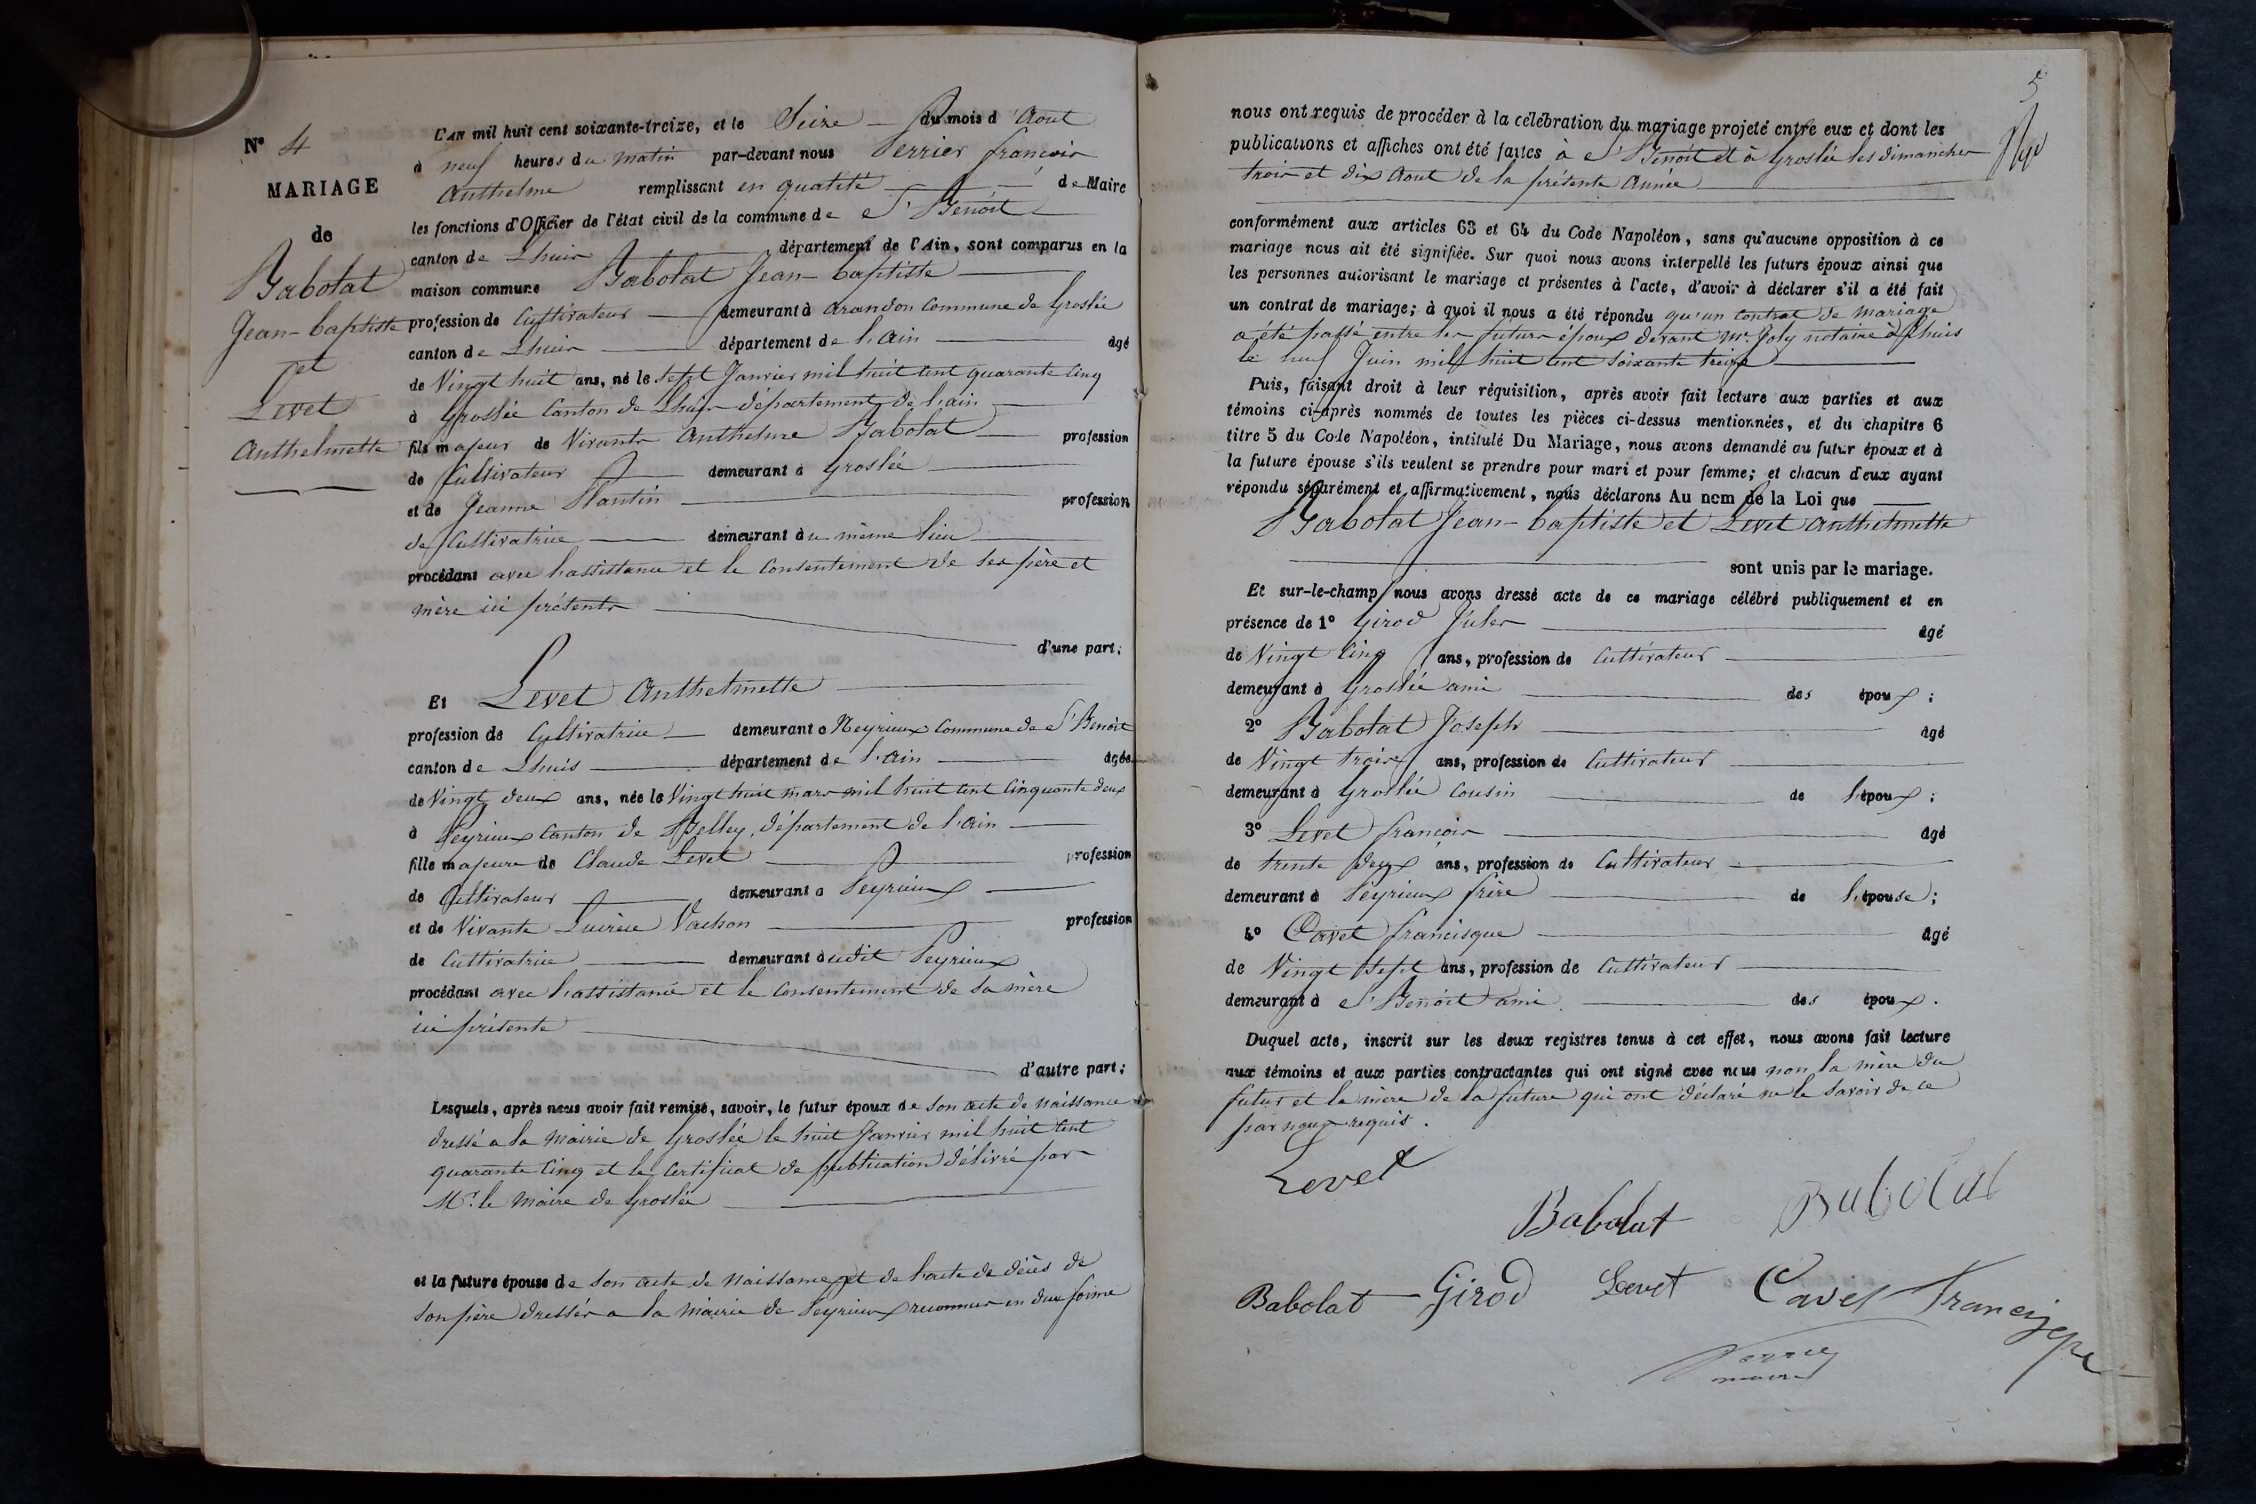 N° 4
MARIAGE
de
Babolat
Jean-baptiste
et
Levet
Anthelmette
L'AN mil huit cent soixante-treize, et le Seize du mois d'Aout
à neuf heures du matin par-devant nous Perrier françois
Anthelme remplissant en qualité de Maire
les fonctions d'Officier de l'état civil de la commune de St Benoit
canton de Lhuis département de l'Ain, sont comparus en la
maison commune Babolat Jean-baptiste
profession de Cultivateur demeurant à arandon Commune de Groslée
canton de Lhuis département de l'ain âgé
de Vingt huit ans, né le Sept Janvier mil huit cent quarante cinq
à Groslée Canton de Lhuis département de l'ain
fils majeur de Vivants Anthelme Babolat profession
de Cultivateur demeurant à Groslée
et de Jeanne Plantin profession
de Cultivatrice demeurant au même lieu
procédant avec l'assistance et le consentement de ses père et
mère ici présents
d'une part;
Et Levet Anthelmette
profession de Cultivatrice demeurant à Neyrieux Commune de St Benoit
canton de Lhuis département de l'ain âgée
de Vingt deux ans, née le Vingt huit mars mil huit cent Cinquante deux
à Peyrieux Canton de Belley, département de l'ain
fille majeure de Claude Levet profession
de Cultivateur demeurant à Peyrieux
et de Vivante Vachon profession
de Cultivatrice demeurant audit Peyrieux
procédant avec l'assistance et le consentement de sa mère
ici présente
d'autre part;
Lesquels, après nous avoir fait remise, savoir, le futur époux de son acte de naissance
dressé a la mairie de Groslée le huit Janvier mil huit cent
quarante Cinq et le Certificat de publication délivré par
Mr. le Maire de Groslée
et la future épouse de son acte de Naissance et de l'acte de décès de
son père dressés a la mairie de Peyrieux reconnus en due forme
5
nous ont requis de procéder à la célébration du mariage projeté entre eux et dont les
publications et affiches ont été faites à St Benoit et à Groslée les dimanches
trois et dix Aout de la présente Année
conformément aux articles 63 et 64 du Code Napoléon, sans qu'aucune opposition à ce
mariage nous ait été signifiée. Sur quoi nous avons interpellé les futurs époux ainsi que
les personnes autorisant le mariage et présentes à l'acte, d'avoir à déclarer s'il a été fait
un contrat de mariage; à quoi il nous a été répondu qu'un contrat de mariage
a été passé entre les futurs époux devant Mr. Joly notaire à Lhuis
le neuf Juin mil huit cent soixante treize
Puis, faisant droit à leur réquisition, après avoir fait lecture aux parties et aux
témoins ci-après nommés de toutes les pièces ci-dessus mentionnées, et du chapitre 6
titre 5 du Code Napoléon, intitulé Du Mariage, nous avons demandé au futur époux et à
la future épouse s'ils veulent se prendre pour mari et pour femme; et chacun d'eux ayant
répondu séparément et affirmativement, nous déclarons Au nom de la Loi que
Babolat Jean-baptiste et Levet Anthelmette
sont unis par le mariage.
Et sur-le-champ nous avons dressé acte de ce mariage célébré publiquement et en
présence de 1° Girod Jules âgé
de Vingt Cinq ans, profession de Cultivateur
demeurant à Groslée ami des époux;
2° Babolat Joseph âgé
de Vingt trois ans, profession de Cultivateur
demeurant à Groslée Cousin de l'époux;
3° Levet françois âgé
de trente deux ans, profession de Cultivateur
demeurant à Peyrieux frère de l'épouse;
4° Cavet francisque âgé
de Vingt sept ans, profession de Cultivateur
demeurant à St Benoit ami des époux.
Duquel acte, inscrit sur les deux registres tenus à cet effet, nous avons fait lecture
aux témoins et aux parties contractantes qui ont signé avec nous non la mère du
futur et la mère de la future qui ont déclaré ne le savoir de ce
par nous requis.
Levet
Babolat Babolat
Babolat Girod Levet Cavet Francisque
Perrier
maire